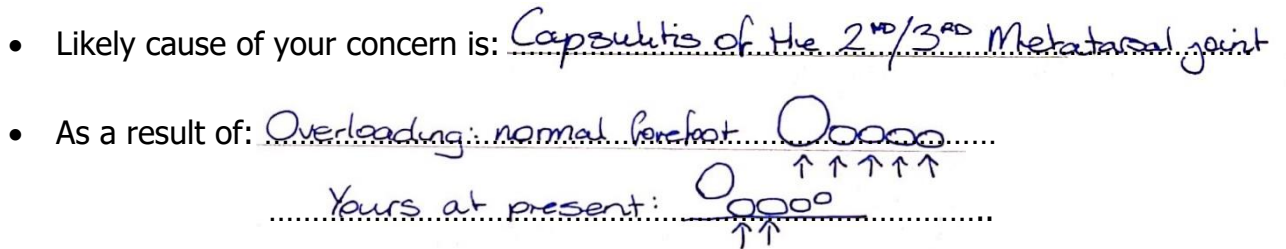 • Likely cause of your concern is: Capsulitis of the 2ND/3RD Metatarsal joint
• As a result of: Overloading: normal forefoot
Yours at present: